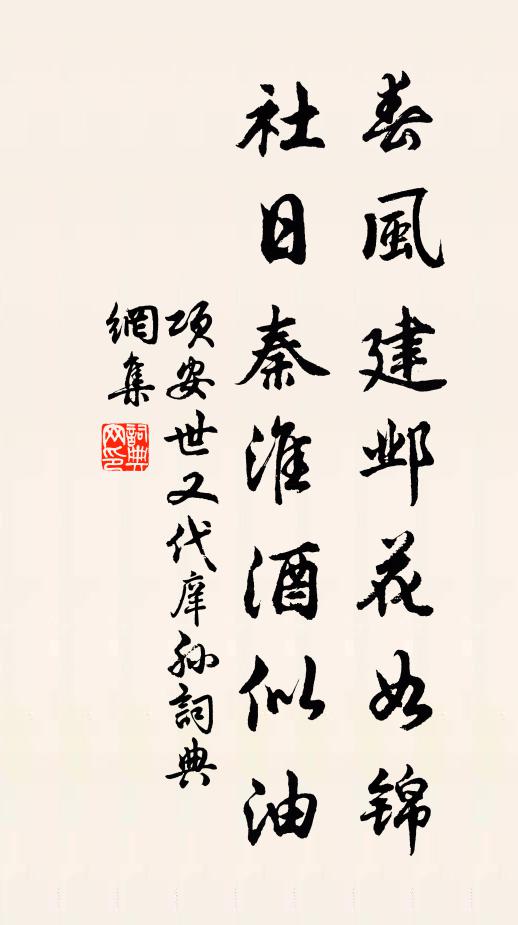 春風建邺花如錦
社日秦淮酒似油
項安世又代庠孫詞典
網集
詞典